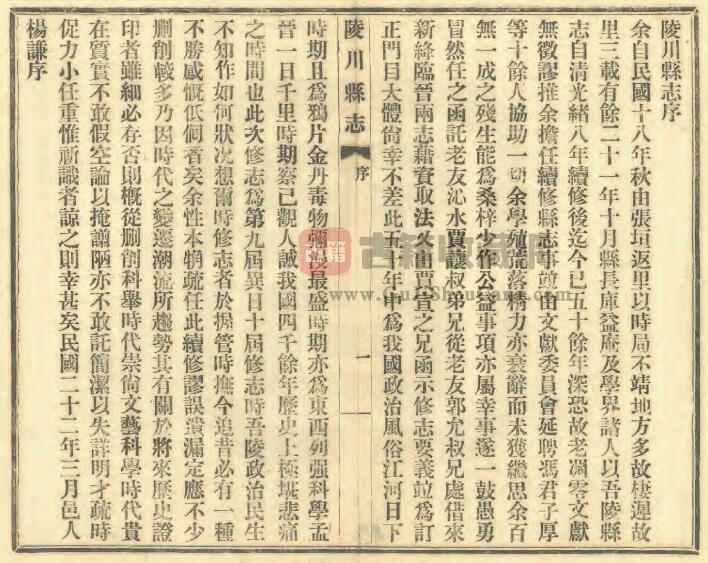 陵川縣志序
余自民國十八年秋由張垣返里以時局不靖地方多故棲遲故
里三載有餘二十一年十月縣長庫益庵及學界諸人以吾陵縣
志自清光緒八年續修後迄今已五十餘年深恐故老凋零文獻
無徵謬推余擔任續修縣志事竝由文獻委員會延聘馮君子厚
等十餘人協助一切余學殖荒落精力亦衰辭而未獲繼思余百
無一成之殘生能為桑梓少作公益事項亦屬幸事遂一鼓愚勇
冒然任之函託老友沁水賈讓叔弟兄從老友郭允叔兄處借來
新絳臨晉兩志藉資取法又由賈宣之兄函示修志要義竝為訂
正門目大體尙幸不差此五十年中為我國政治風俗江河日下
陵川縣志
序
一
時期且為鴉片金丹毒物彌漫最盛時期亦為東西列强科學孟
晉一日千里時期察己觀人誠我國四千餘年歷史上極堪悲痛
之時間也此次修志為第九屆異日十屆修志時吾陵政治民生
不知作如何狀況想爾時修志者於握管時撫今追昔必有一種
不勝感慨低徊者矣余性本獷疏任此續修謬誤遺漏定應不少
刪削較多乃因時代之變遷潮流所趨勢其有關於將來歷史證
印者雖細必存否則槪從刪削科舉時代崇尙文藝科學時代貴
在質實不敢假空論以掩謭陋亦不敢託簡潔以失詳明才疏時
促力小任重惟祈識者諒之則幸甚矣民國二十二年三月邑人
楊謙序
古籍
古籍收藏周